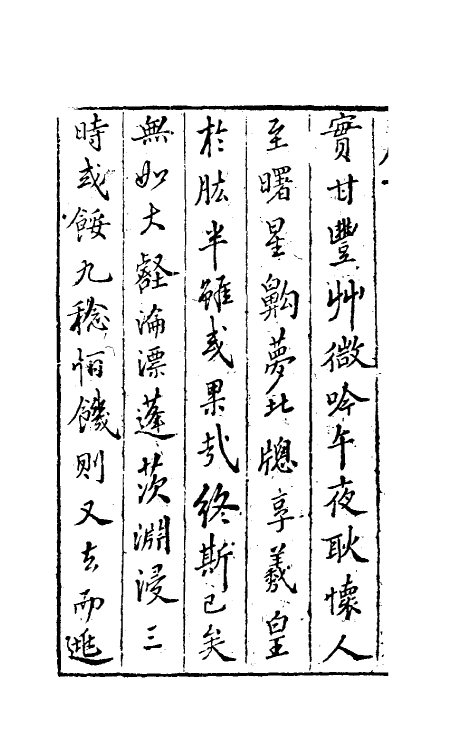 實甘豐艸微吟午夜耿懷人
至曙星齁夢北牕享羲皇
於肱半雖或果哉終斯已矣
無如大壑淪漂蓬茨淵浸三
時或餒九稔悁饑則又去而逃